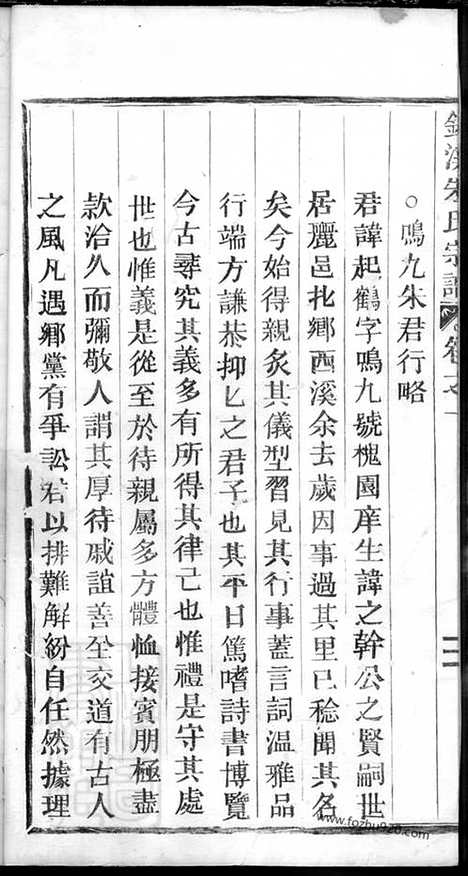 溪朱氏宗譜 卷之一
○鳴九朱君行略
君諱起鶴字鳴九號槐園庠生諱之幹公之賢嗣世
居麗邑北鄉西溪余去歲因事過其里已稔聞其名
矣今始得親炙其儀型習見其行事蓋言詞溫雅品
行端方謙恭抑抑之君子也其平日篤嗜詩書博覽
今古尋究其義多有所得其律己也惟禮是守其處
世也惟義是從至於待親屬多方體恤接賓朋極盡
款洽久而彌敬人謂其厚待戚誼善全交道有古人
之風凡遇鄉黨有爭訟君以排難解紛自任然據理
www.fozhu920.com